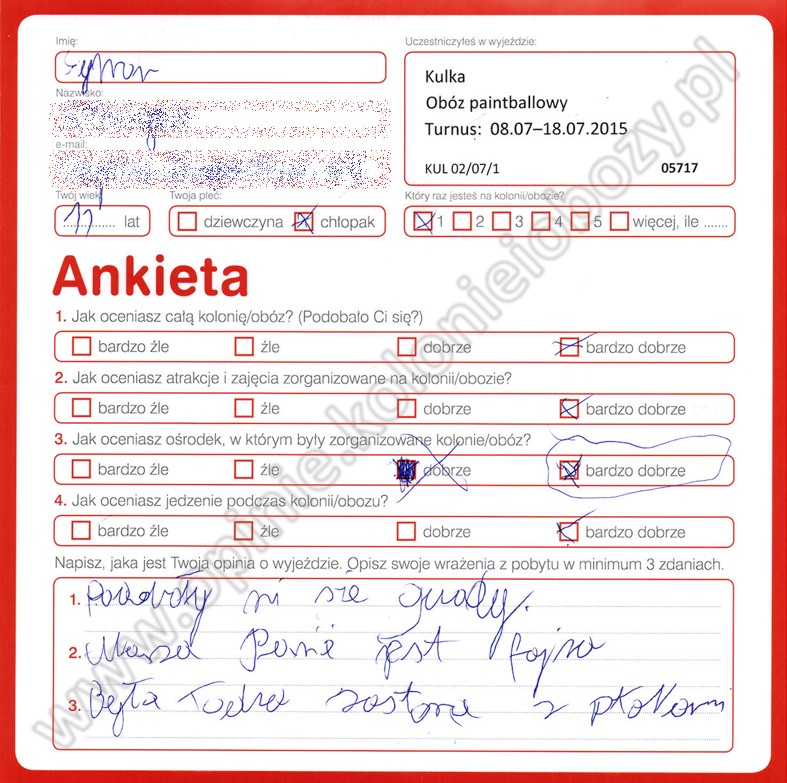 Imię:
Szymon
Uczestniczyłeś w wyjeździe:
Kulka
Obóz paintballowy
Turnus: 08.07–18.07.2015
KUL 02/07/1 05717
Nazwisko:
e-mail:
Twój wiek Twoja płeć: Który raz jesteś na kolonii/obozie?
11 lat dziewczyna chłopak 1 2 3 4 5 więcej, ile .......
Ankieta
1. Jak oceniasz całą kolonię/obóz? (Podobało Ci się?)
bardzo źle źle dobrze bardzo dobrze
2. Jak oceniasz atrakcje i zajęcia zorganizowane na kolonii/obozie?
bardzo źle źle dobrze bardzo dobrze
3. Jak oceniasz ośrodek, w którym były zorganizowane kolonie/obóz?
bardzo źle źle dobrze bardzo dobrze
4. Jak oceniasz jedzenie podczas kolonii/obozu?
bardzo źle źle dobrze bardzo dobrze
Napisz, jaka jest Twoja opinia o wyjeździe. Opisz swoje wrażenia z pobytu w minimum 3 zdaniach.
1. podobały mi się
2. Nasza Pani jest fajna
3. Była z
www.opinie.kolonieiobozy.pl